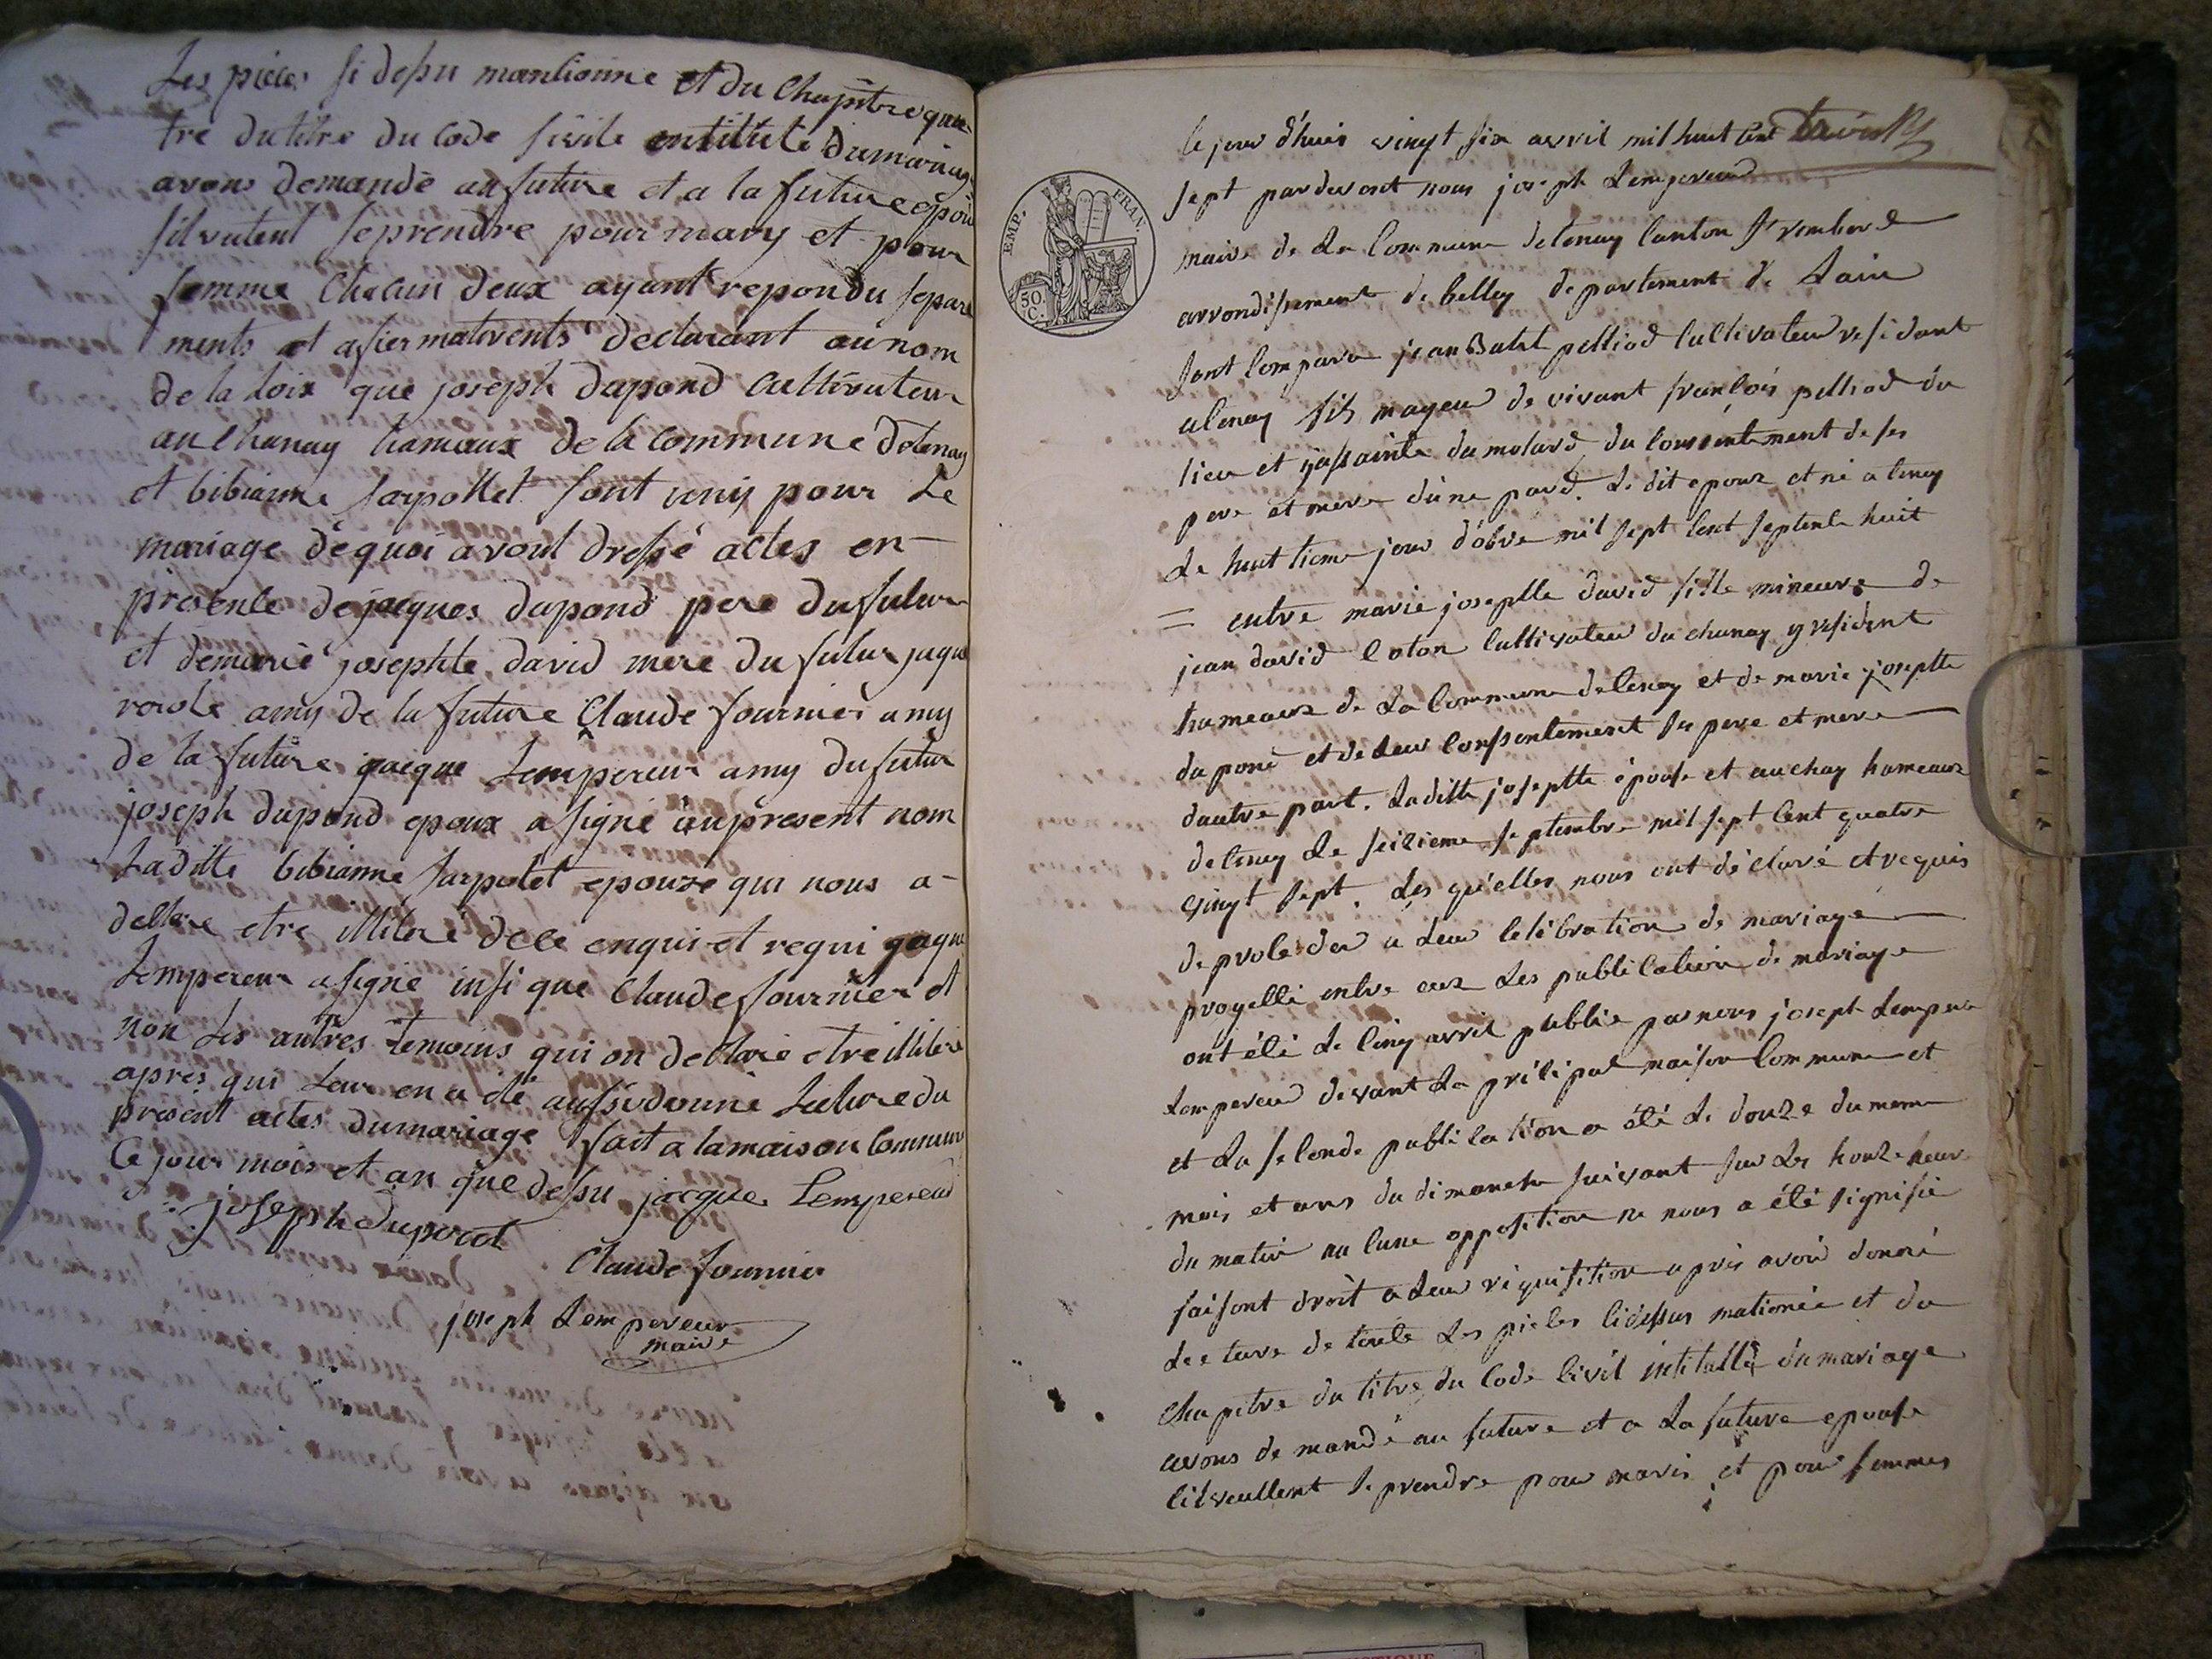 Les pieces si desu mantionne et du Chapitre qua-
tre du titre du Code sivile entitulé du mariage
avons demandé au future et a la future epou
sil vulent se prendre pour mary et pour
femme Chacun deux ayant repondu separe
ments et afiermativents declarant au nom
de la Loix que joseph dupond Cultivateur
au Chanay hamaux de la commune de tenay
et bibianne sarpollet sont unis pour Le
mariage de quoi avont dressé actes en-
présence de jacques dupond pere du futur
et de marie josephte david mere du futur jaque
amy de la future Claude fournier amy
de la future jacque Lempereur amy du futur
joseph dupond epoux a signé au present nom
Laditte bibianne sarpolet epouze qui nous a-
dellare etre illiteré de ce enquis et requi jaque
Lempereur a signe insi que Claude fournier et
non Les autres temoins qui on dellaré etre illiteré
apres qui Leur en a été aussi donné Lecture du
présent actes du mariage fait a la maison Commune
Ce jour mois et an que desu jacques Lempereur
joseph dupond
Claude fournier
joseph Lempereur
maire
EMP. FRAN.
50
C.
le jour d'huis vingt six avril mil huit cent
sept pardevant nous joseph Lempereur
maire de La Commune de tenay Canton St rembert
arrondisement de belley departement de Lain
sont Compara jean Batist pelliod Cultivateur residant
a tenay fils mageur de vivant françois pelliod du
lieu et du molard du Consentement de ses
pere et mere d'une pard. Le dit epoux et né a tenay
Le huit tieme jour d'obre mil sept Cent septente huit
= entre marie josephte david fille mineure de
jean david Coton Cultivateur du chanay y resident
hameaux de La Commune de tenay et de marie josephte
du pond et de Leur Conssentement Ses pere et mere
dautre part. Laditte josephte épouse et au chay hameaux
de tenay Le seizieme septembre mil sept Cent quatre
vingt sept. Les qu'elles nous ont déclaré et requis
de proceder a Leur Celébration de mariage
progetté entre eux Les publication de mariage
ont été Le Cinq avril publié par nous joseph Lempere
Lempereur devant La principal maison Commune et
et La seconde publication a été Le douze du meme
mois et ans du dimanche suivant sur Les honze heur
du matin au Cune opposition ne nous a été signifié
faisont droit a Leur requisition apris avoir donné
Lecture de toute Les pieces Cidessus mationée et du
Chapitre du titre du Code Civil intitullé du mariage
avons demandé au future et a La future epouse
Cil veullent se prendre pour maris et pour femmes